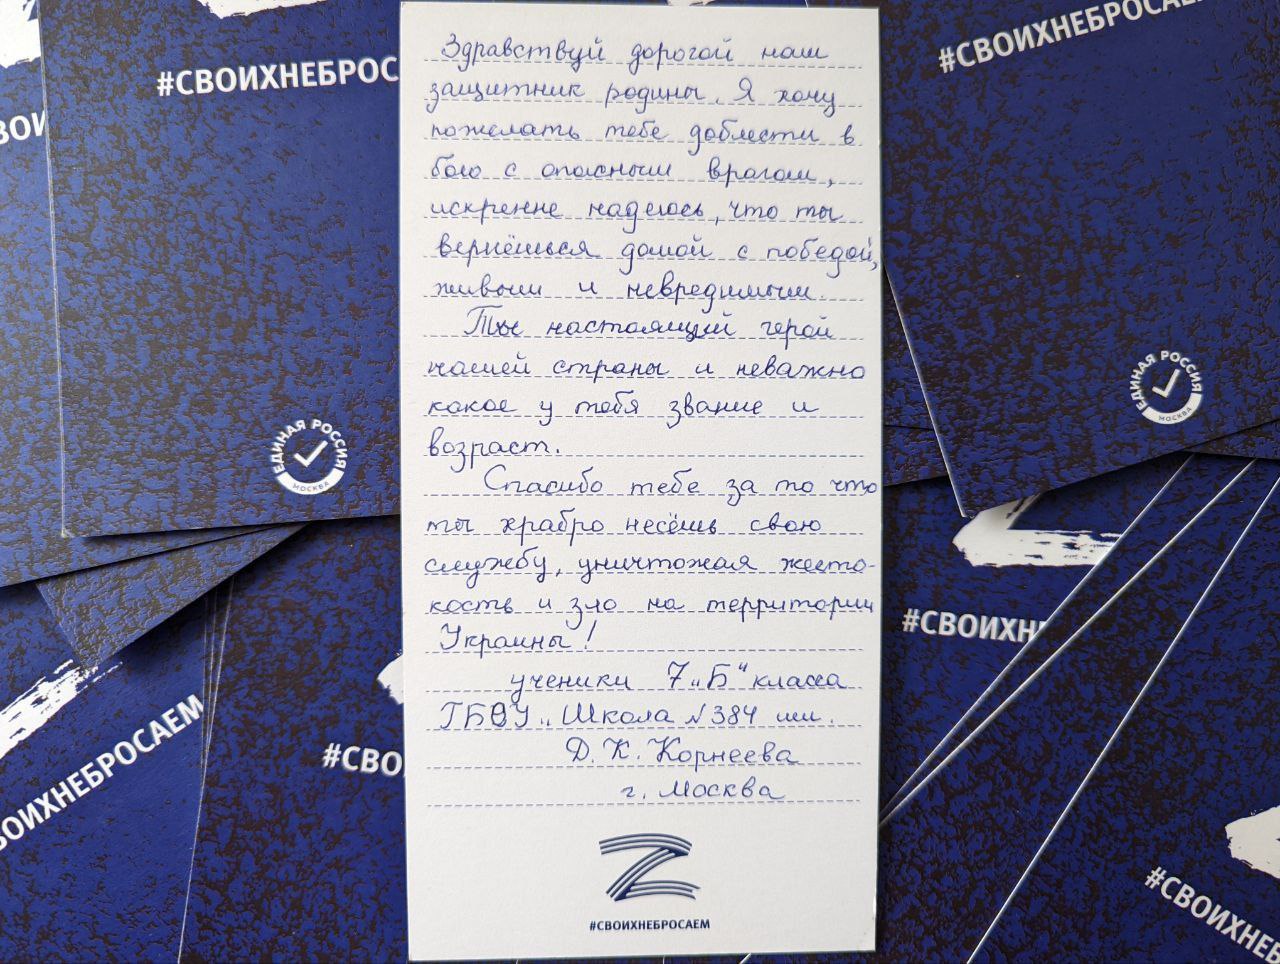 Здравствуй дорогой наш
защитник родины. Я хочу
пожелать тебе доблести в
бою с опасным врагом,
искренне надеюсь, что ты
вернёшься домой с победой,
живым и невредимым.
Ты настоящий герой
нашей страны и неважно
какое у тебя звание и
возраст.
Спасибо тебе за то что
ты храбро несёшь свою
службу, уничтожая жесто-
кость и зло на территории
Украины!
ученики 7 „Б“ класса
ГБОУ „Школа №384 им.
Д. К. Корнеева
г. Москва
#СВОИХНЕБРОСАЕМ
#СВОИХНЕБРОС
ЕДИНАЯ РОССИЯ
МОСКВА
#СВОИХНЕБРОСАЕ
ЕДИНАЯ РОССИЯ
МОСКВА
ВОИ
ВОИХНЕБРОСАЕМ
#СВО
#СВОИХН
#СВОИХНЕБРОСАЕ